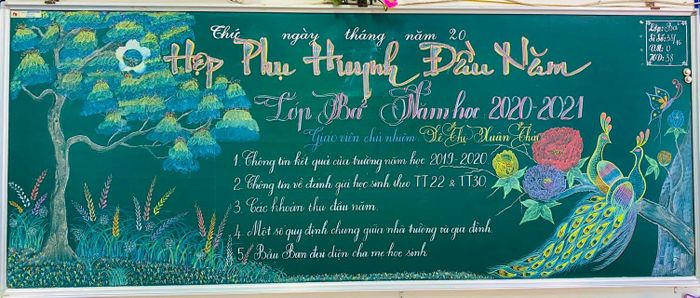 Thứ ngày tháng năm 20
Họp Phụ Huynh Đầu Năm
Lớp Ba² Năm học 2020-2021
Giáo viên chủ nhiệm: Lê Thị Xuân
1. Thông tin kết quả của trường năm học 2019-2020.
2. Thông tin về đánh giá học sinh theo TT22 & TT30
3. Các khoản thu đầu năm.
4. Một số quy định chung giữa nhà trường và gia đình
5. Bầu Ban đại diện cha mẹ học sinh.
Lớp: Ba²
V: 0